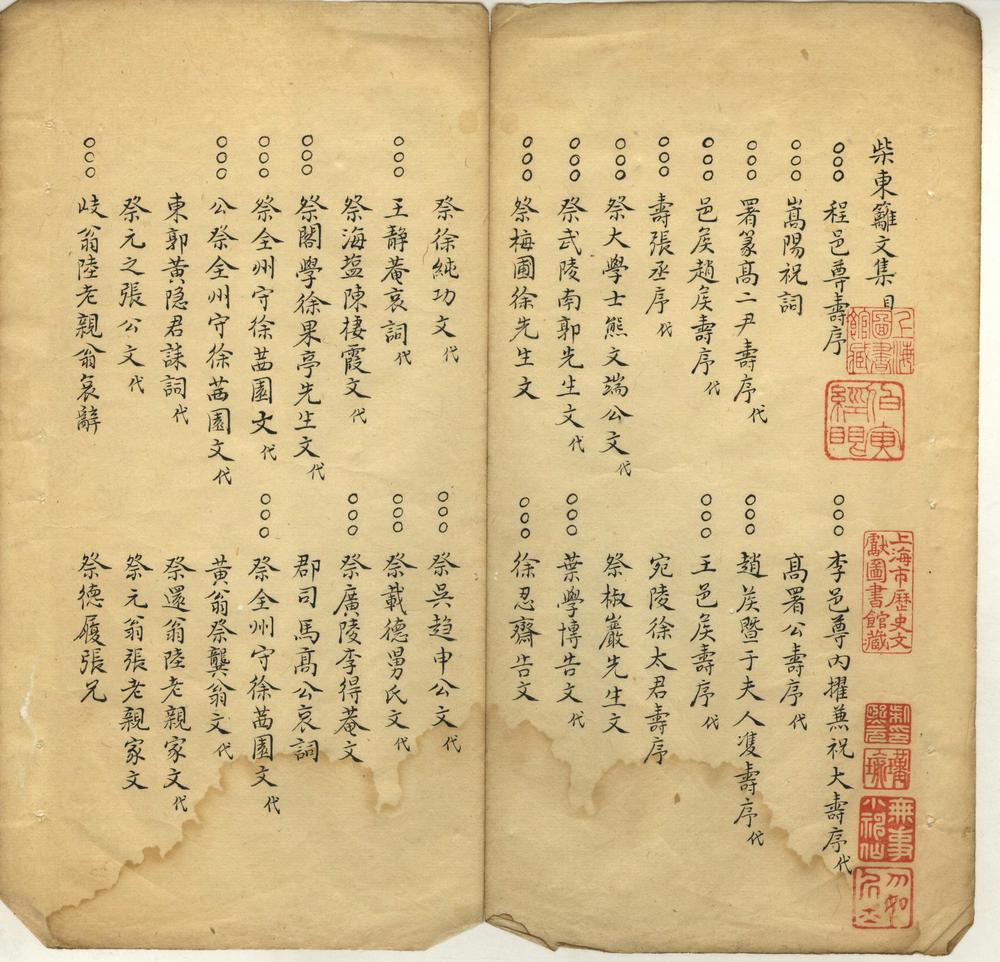 柴東籬文集目
○○○ 程邑尊壽序
○○○ 李邑尊內擢兼祝大壽序代
○○○ 嵩陽祝詞
高署公壽序代
○○○ 署篆高二尹壽序代
○○○ 趙侯暨于夫人雙壽序代
○○○ 邑侯趙侯壽序代
○○○ 王邑侯壽序代
○○○ 壽張丞序代
宛陵徐太君壽序
○○○ 祭大學士熊文端公文代
祭椒巖先生文
○○○ 祭武陵南郭先生文代
○○○ 葉學博告文代
○○○ 祭梅圃徐先生文
○○○ 徐忍齋告文
祭徐純功文代
○○○ 祭吳趨申公文代
○○○ 王靜菴哀詞代
○○○ 祭戴德舅氏文代
祭海塩陳棲霞文代
○○○ 祭廣陵李得菴文
○○○ 祭閣學徐果亭先生文代
郡司馬高公哀詞
○○○ 祭全州守徐茜園文代
○○○ 祭全州守徐茜園文代
○○○ 公祭全州守徐茜園文代
黃翁祭龔翁文代
東郭黃隐君誄詞代
祭還翁陸老親家文代
祭元之張公文代
祭元翁張老親家文
○○○ 歧翁陸老親翁哀辭
祭德履張兄
上海圖書館藏
伯寅經眼
上海市歷史文獻圖書館藏
無事小神仙